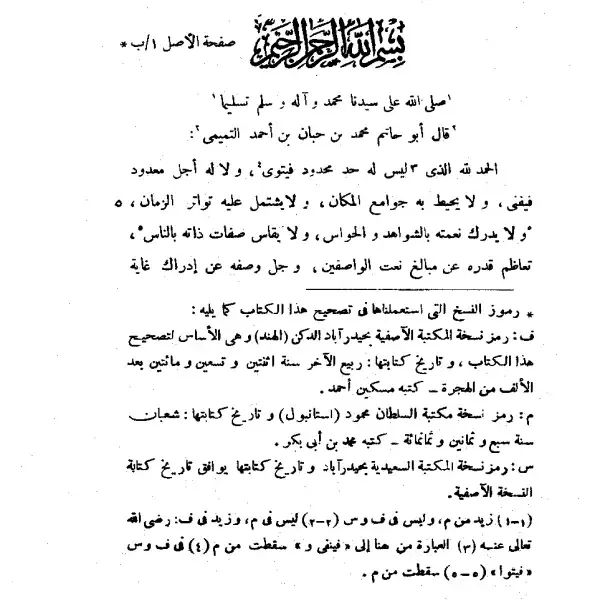 بسم الله الرحمن الرحيم صفحة الأصل ١/ب *
'صلى الله على سيدنا محمد وآله و سلم تسليما'
'قال أبو حاتم محمد بن حبان بن أحمد التميمى':
الحمد لله الذى ٣ ليس له حد محدود فيتوى٤، و لا له أجل معدود
فيفنى، و لا يحيط به جوامع المكان، و لا يشتمل عليه تواتر الزمان، ٥
٥و لا يدرك نعمته بالشواهد و الحواس، و لا يقاس صفات ذاته بالناس٥،
تعاظم قدره عن مبالغ نعت الواصفين، و جل وصفه عن إدراك غاية
* رموز النسخ التى استعملناها فى تصحيح هذا الكتاب كما يليه:
ف: رمز نسخة المكتبة الآصفية بحيدرآباد الدكن (الهند) و هى الأساس لتصحيح
هذا الكتاب، و تاريخ كتابتها: ربيع الآخر سنة اثنتين و تسعين و مائتين بعد
الألف من الهجرة – كتبه مسكين أحمد.
م: رمز نسخة مكتبة السلطان محمود (استانبول) و تاريخ كتابتها: شعبان
سنة سبع و ثمانين و ثمانمائة – كتبه محمد بن أبى بكر.
س: رمز نسخة المكتبة السعيدية بحيدرآباد و تاريخ كتابتها يوافق تاريخ كتابة
النسخة الآصفية.
(١-١) زيد من م، وليس فى ف و س (٢-٢) ليس فى م، و زيد فى ف: رضى الله
تعالى عنه (٣) العبارة من هنا إلى «فيفنى و» سقطت من م (٤) فى ف و س
«فيتوا» (٥-٥) سقطت من م.